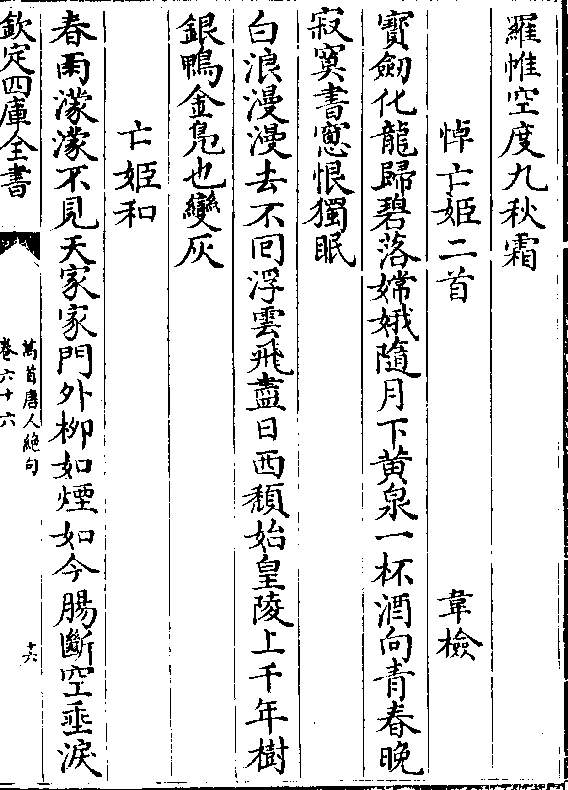 羅帷空度九秋霜
悼亡姬二首 韋檢
寶劒化龍歸碧落嫦娥隨月下黄泉一杯酒向青春晚
寂寞書窻恨獨眠
白浪漫漫去不囘浮雲飛盡日西頽始皇陵上千年樹
銀鴨金鳬也變灰
亡姬和
春雨濛濛不見天家家門外栁如煙如今腸斷空垂淚
欽定四庫全書
萬首唐人絶句
卷六十六
十六